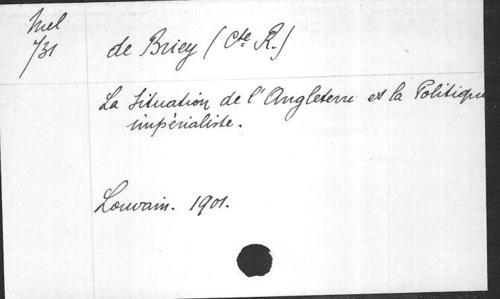 Mel
731
de Briey (Cte R.)
La Situation de l'Angleterre et la Politique
impérialiste.
Louvain. 1901.